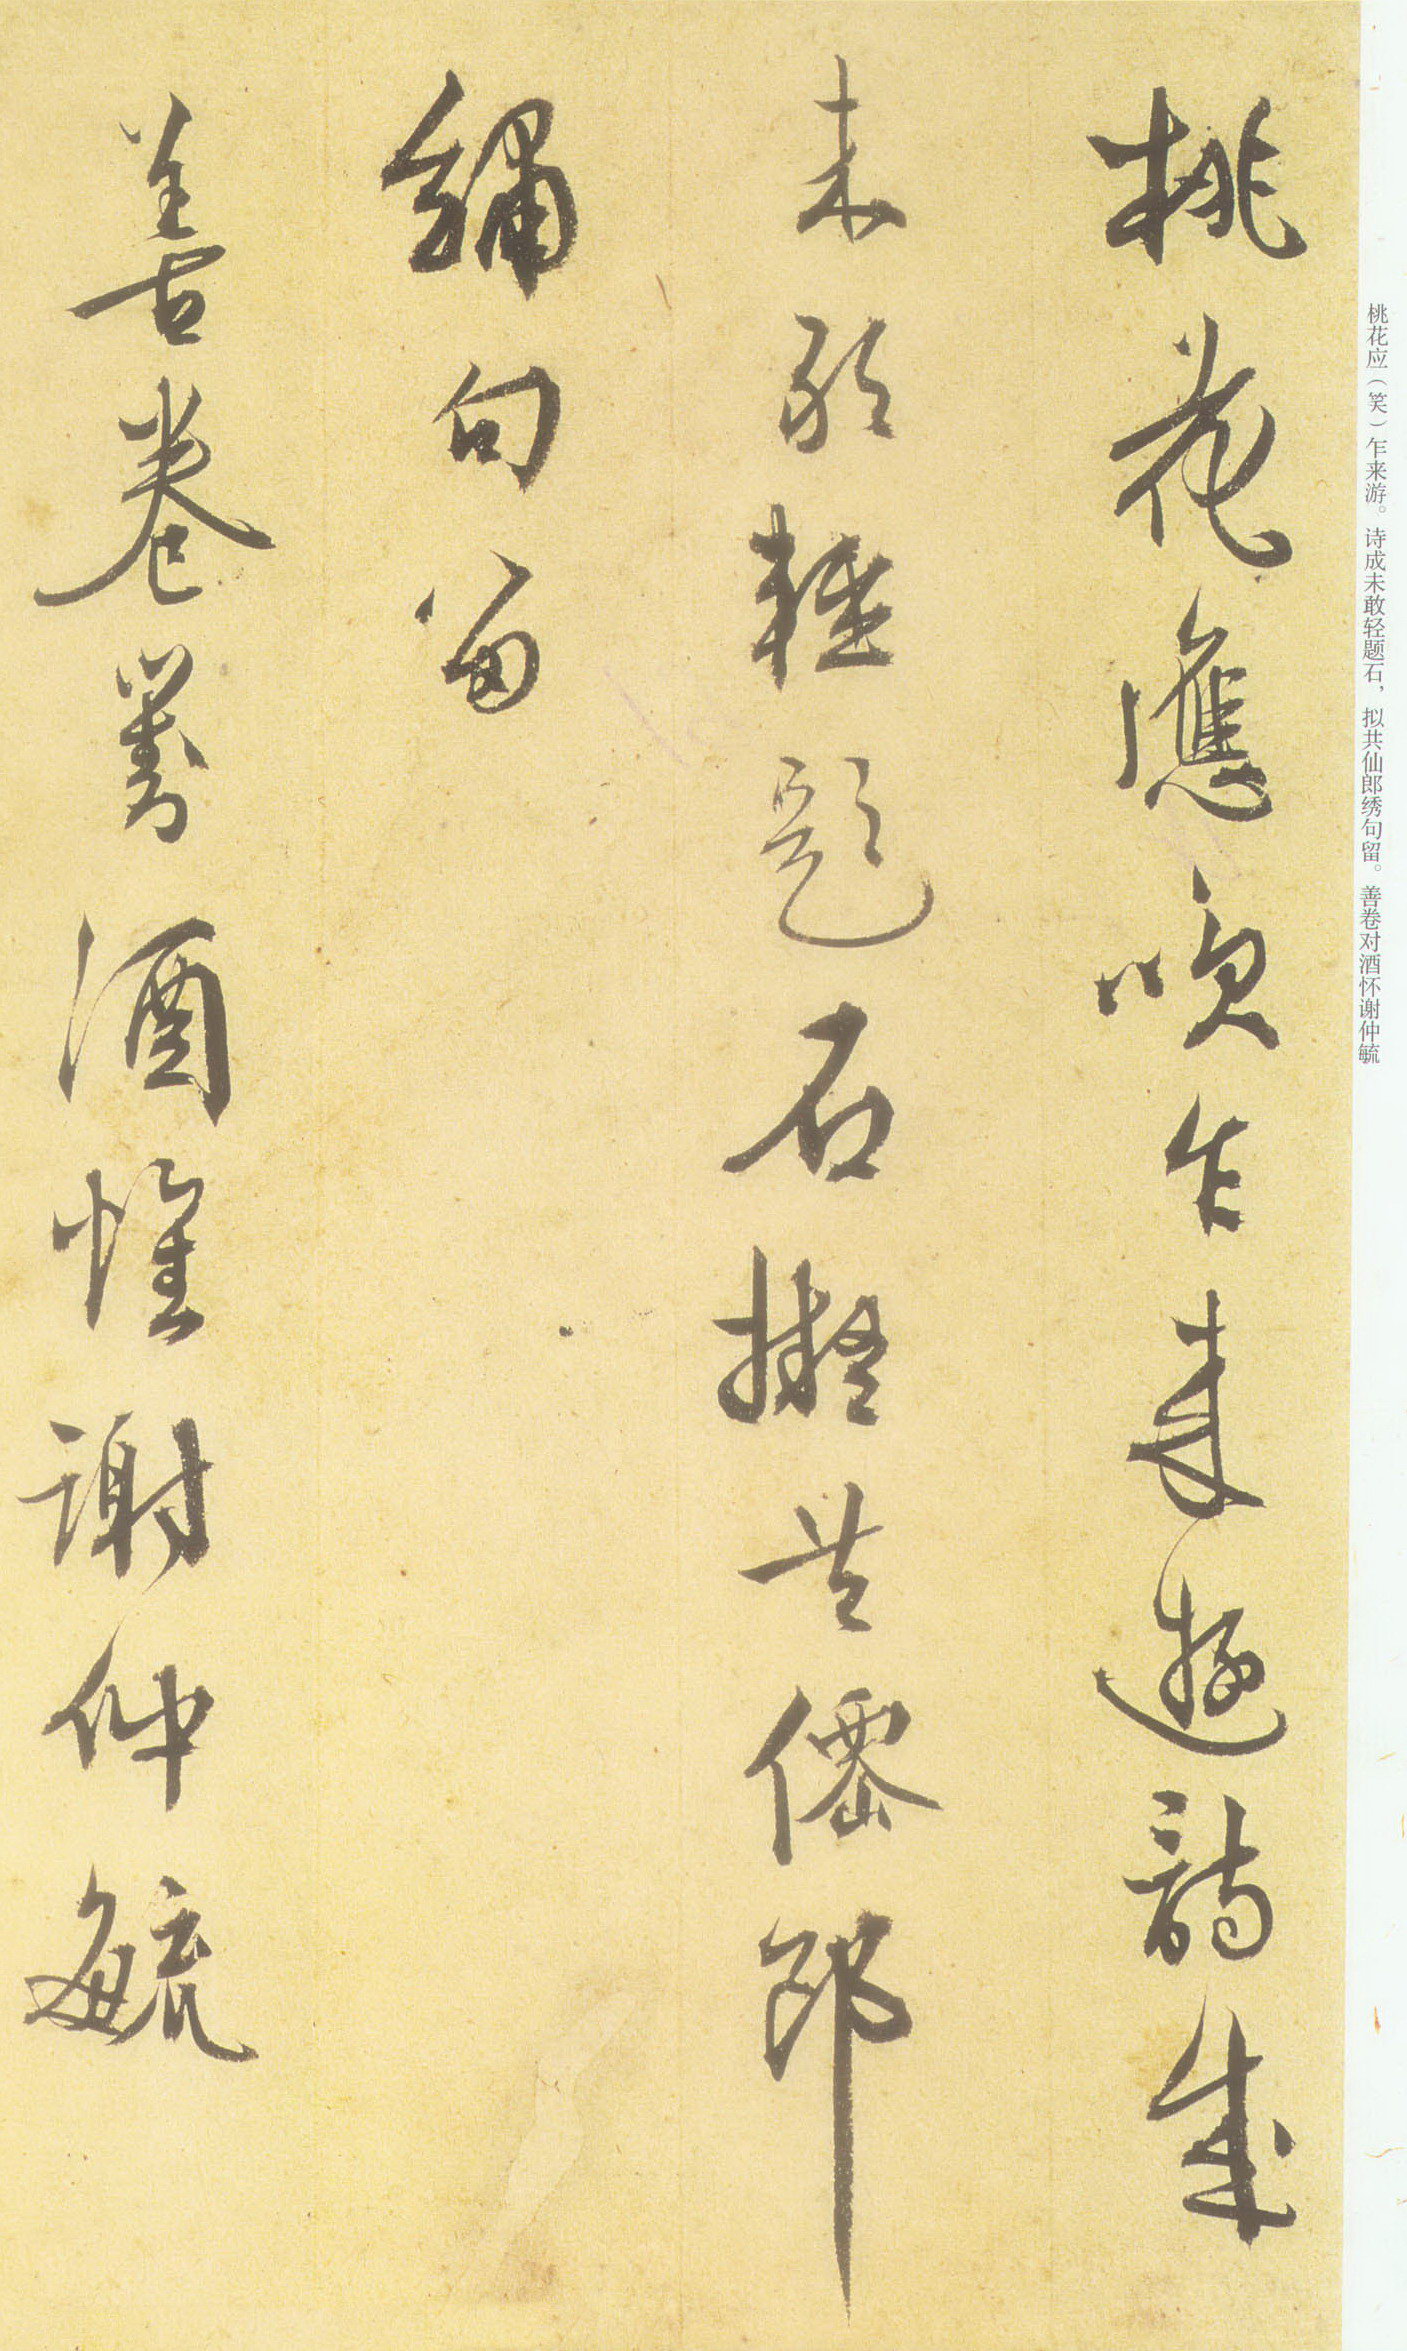 桃花應咲乍来遊詩成
未敢軽題石擬共僊郎
繡句留
善卷對酒懷謝仲毓
桃花应（笑）乍来游。诗成未敢轻题石，拟共仙郎绣句留。善卷对酒怀谢仲毓